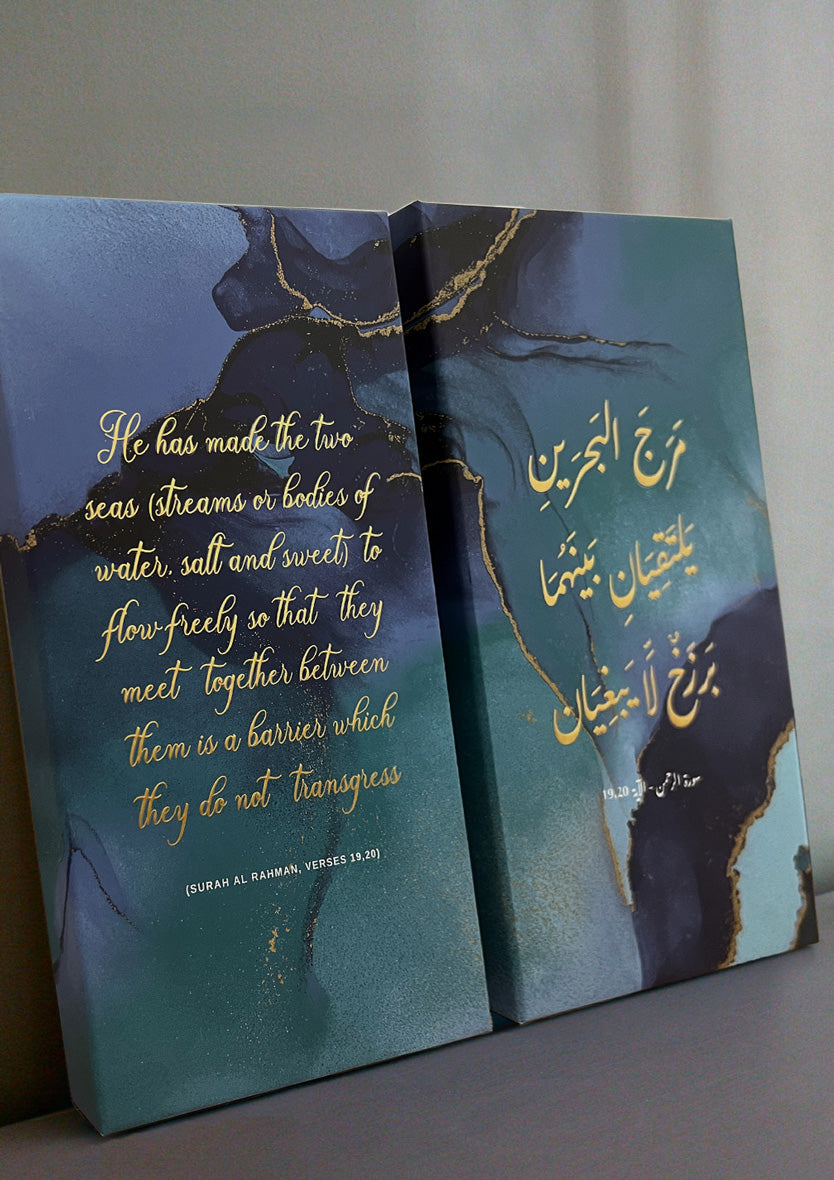 He has made the two
seas (streams or bodies of
water, salt and sweet) to
flow freely so that they
meet together between
them is a barrier which
they do not transgress
(SURAH AL RAHMAN, VERSES 19,20)
مَرَجَ البَحرَينِ
يَلتَقِيَانِ بَينَهُمَا
بَرزَخٌ لَا يَبغِيَان
سورة الرحمن - الآية 19,20